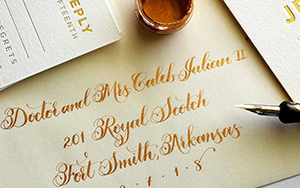 REPLY
FIFTEENTH
REGRETS
Doctor and Mrs. Caleb Julian II
201 Royal Scotch
Fort Smith, Arkansas